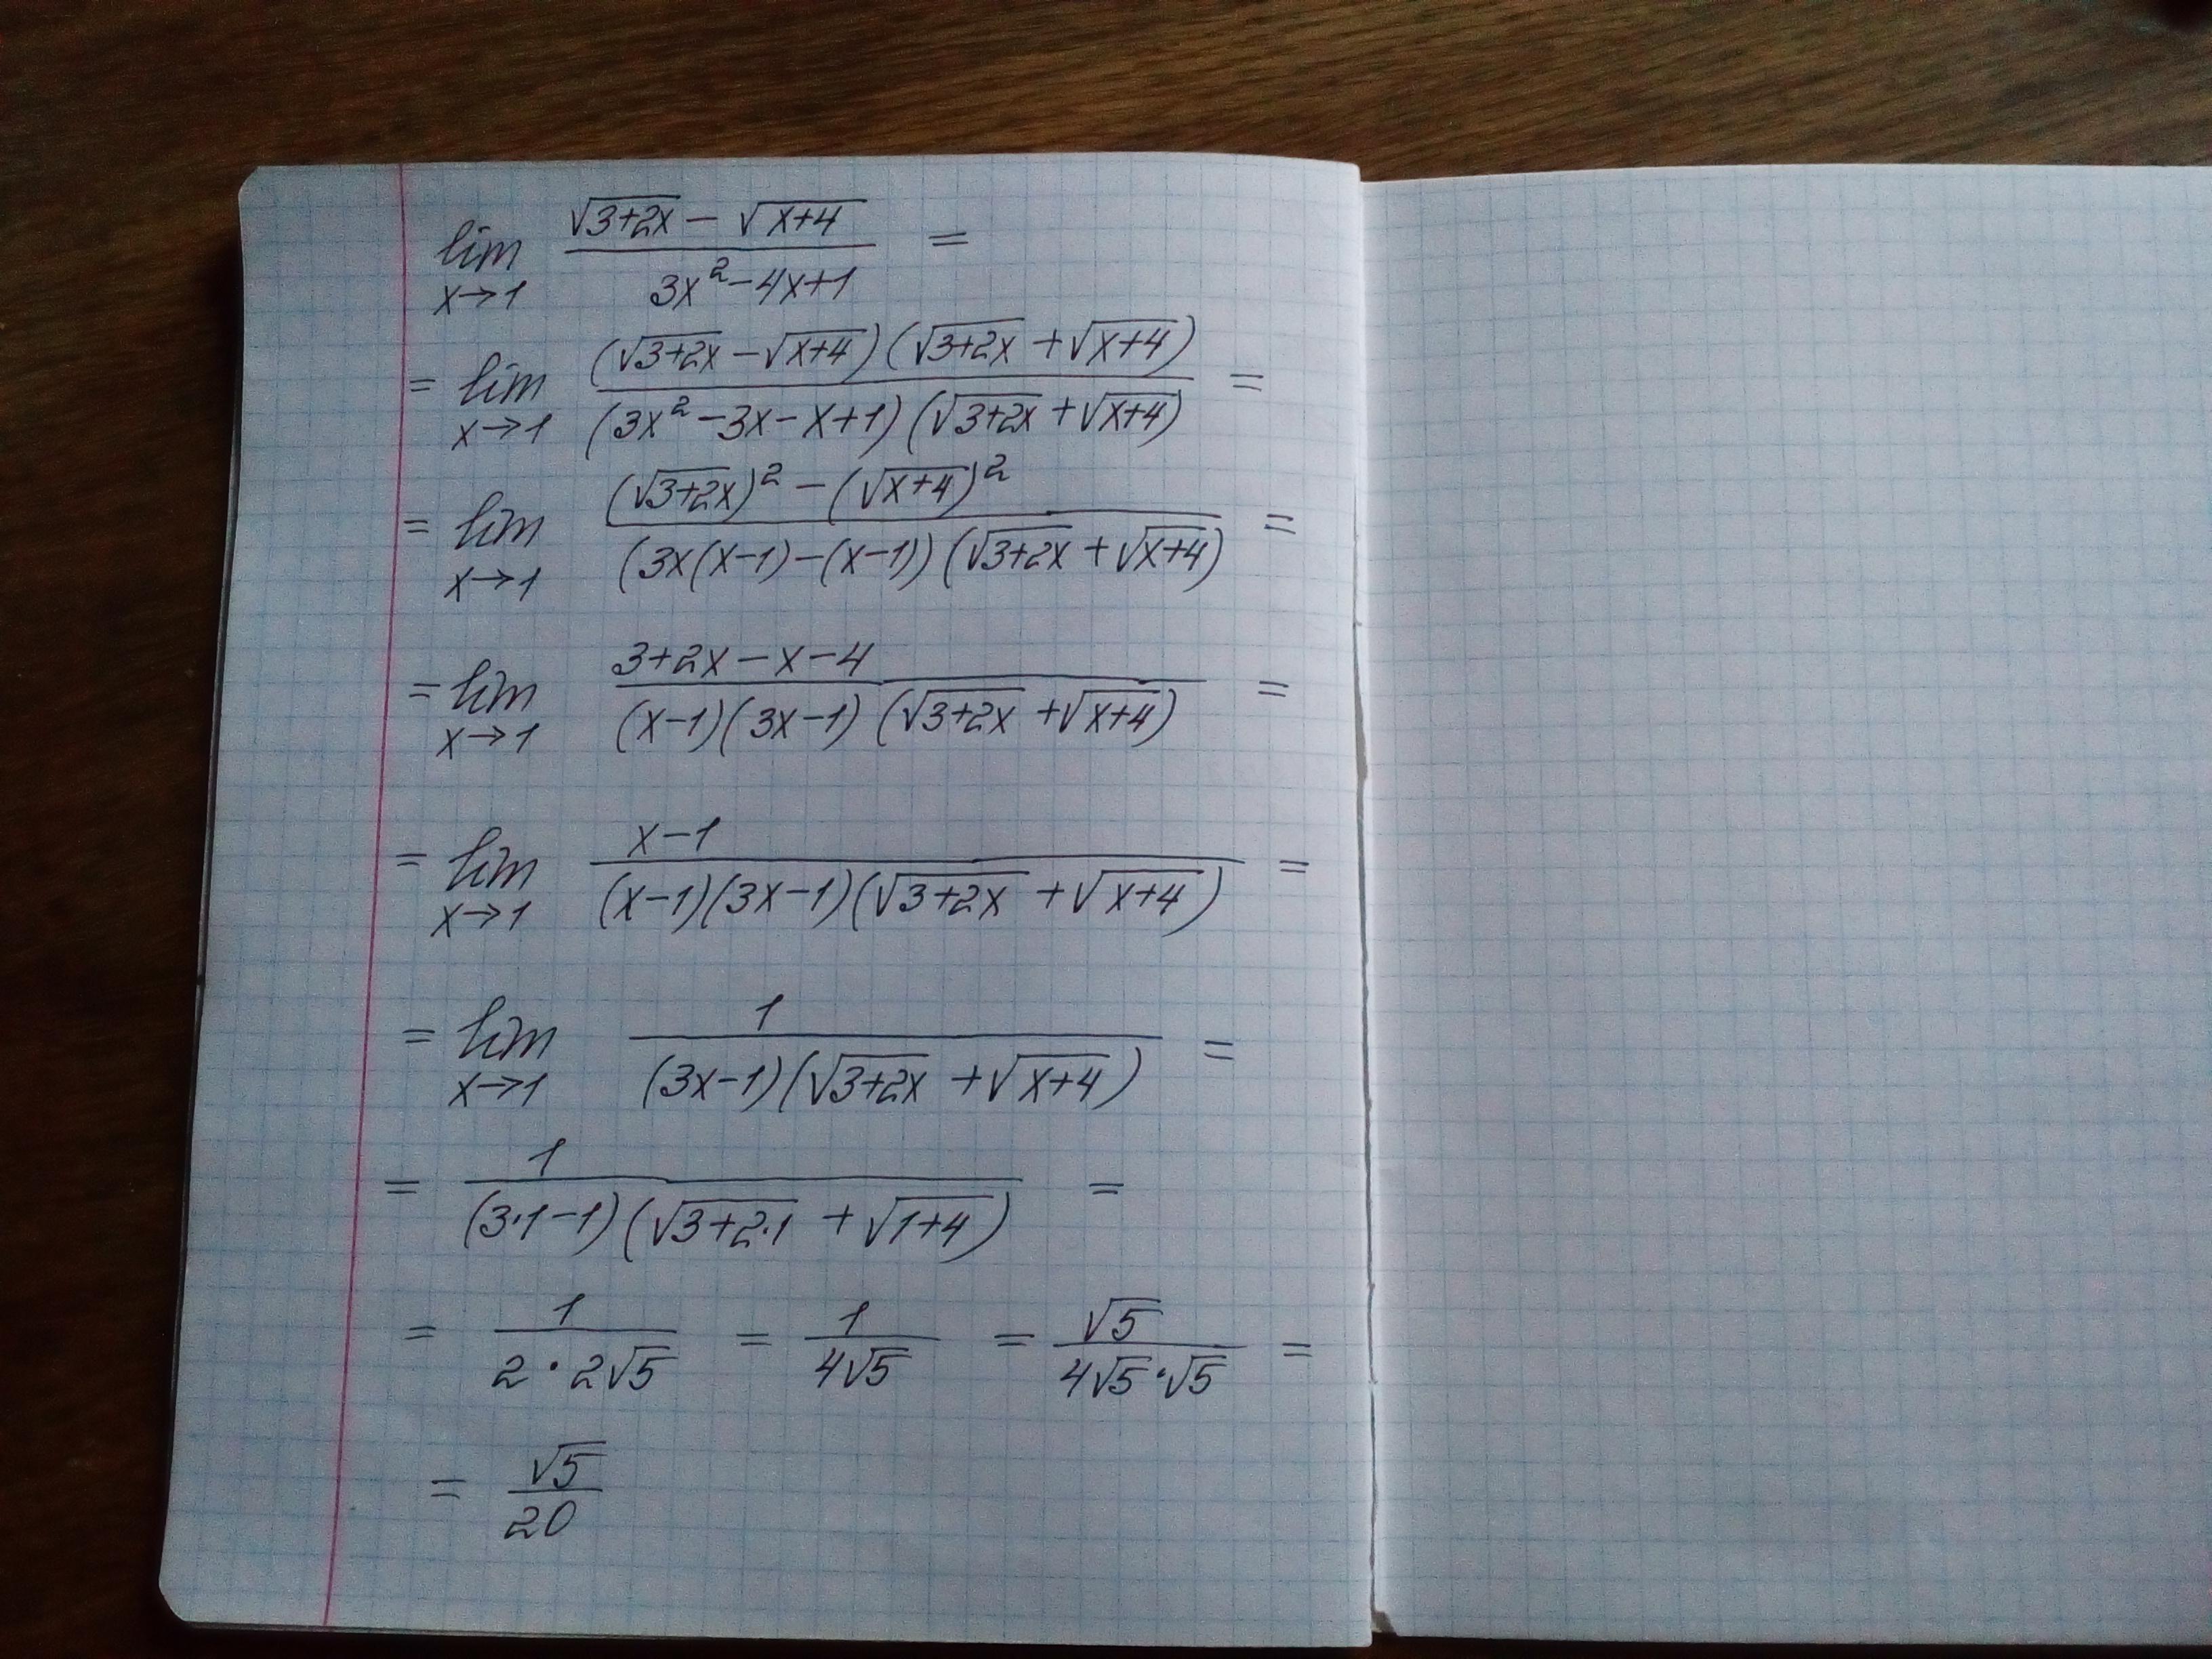 lim x→1 (√(3+2x) − √(x+4)) / (3x² − 4x + 1) =
= lim x→1 ((√(3+2x) − √(x+4)) (√(3+2x) + √(x+4))) / ((3x² − 3x − x + 1) (√(3+2x) + √(x+4))) =
= lim x→1 ((√(3+2x))² − (√(x+4))²) / ((3x(x−1) − (x−1)) (√(3+2x) + √(x+4))) =
= lim x→1 (3+2x−x−4) / ((x−1)(3x−1) (√(3+2x) + √(x+4))) =
= lim x→1 (x−1) / ((x−1)(3x−1)(√(3+2x) + √(x+4))) =
= lim x→1 1 / ((3x−1)(√(3+2x) + √(x+4))) =
= 1 / ((3·1−1)(√(3+2·1) + √(1+4))) =
= 1 / (2 · 2√5) = 1 / (4√5) = √5 / (4√5·√5) =
= √5 / 20